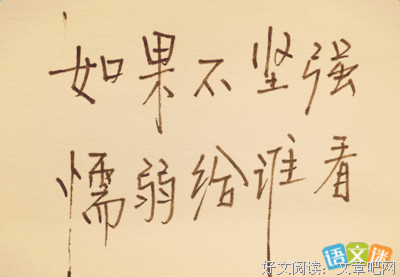 如果不坚强
懦弱给谁看
语文迷
好文阅读：文章吧网